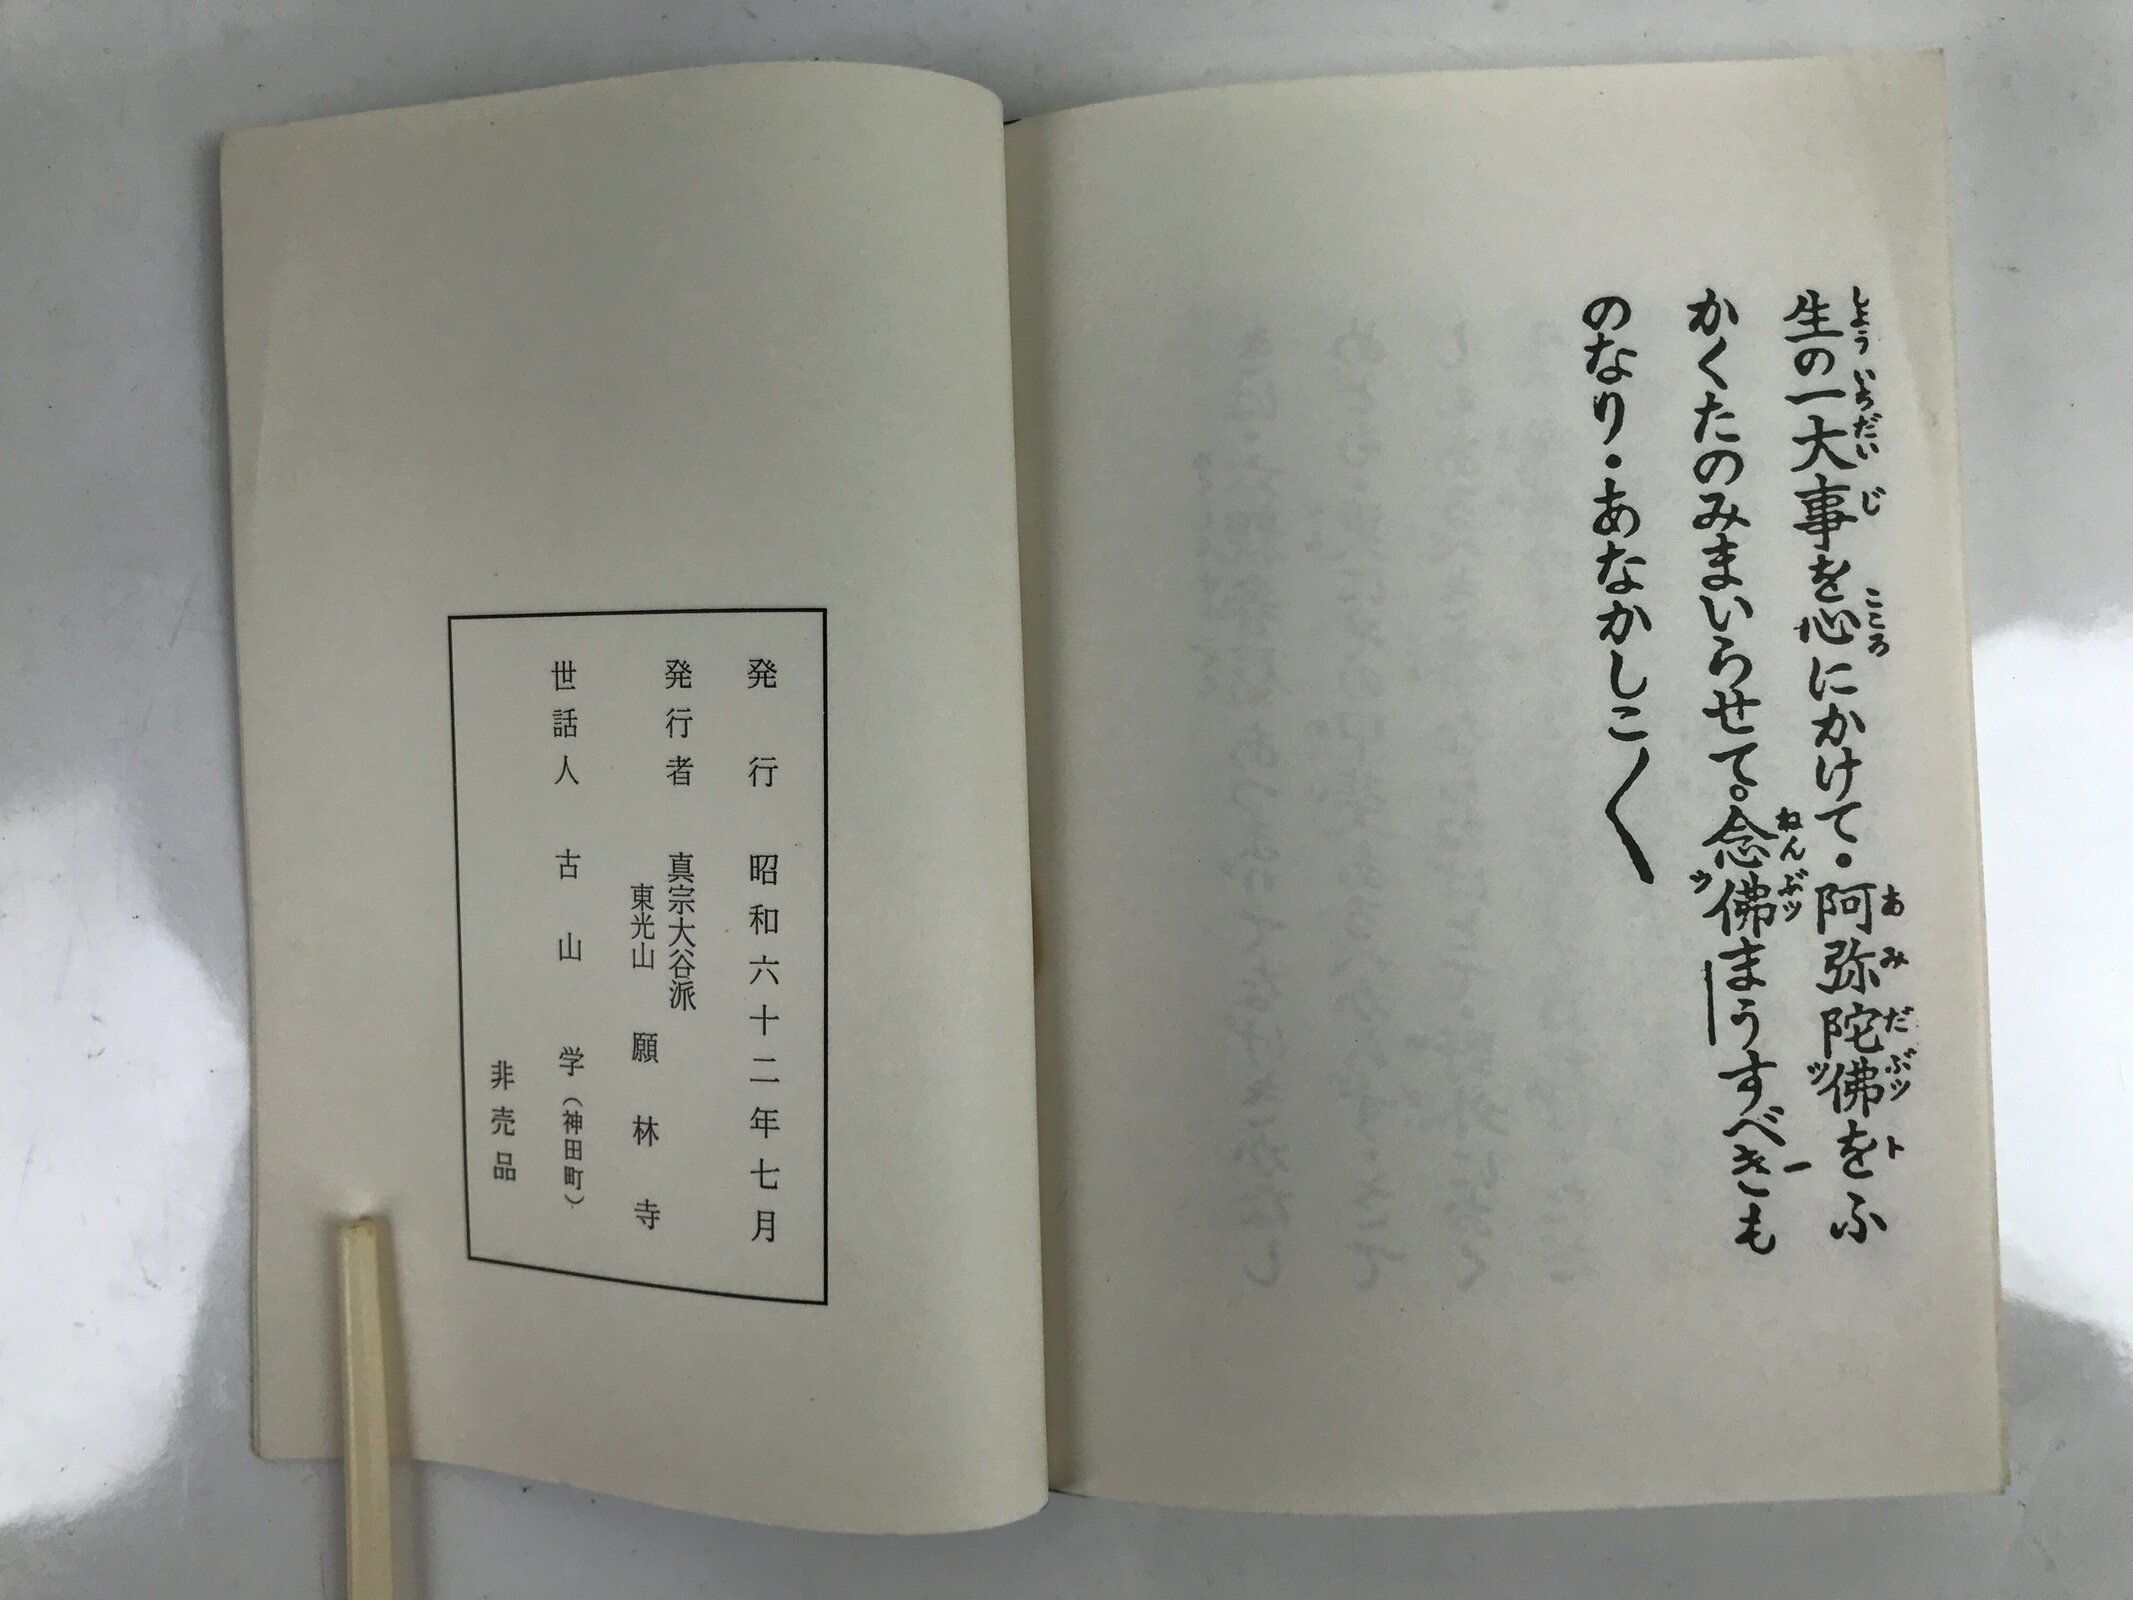 生の一大事を心にかけて・阿弥陀佛をふ
かくたのみまいらせて。念佛まうすべきも
のなり・あなかしこ〱
発行 昭和六十二年七月
発行者 真宗大谷派
東光山 願林寺
世話人 古山 学（神田町）
非売品